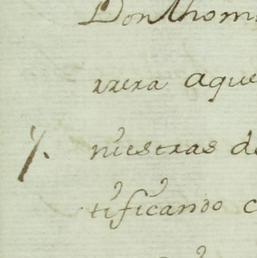 Don Thom
rrera aque
nuestras de
tificando c